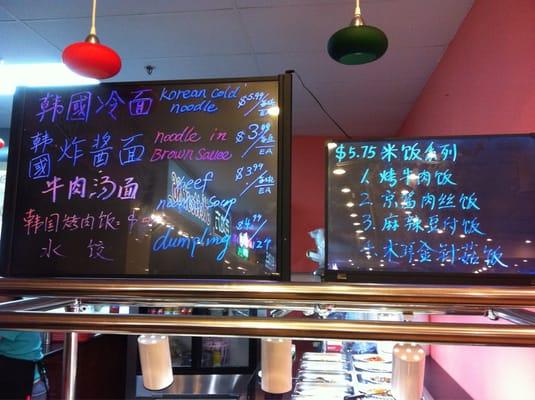 韩國冷面 Korean cold noodle $5.99/每份 EA
韩國炸酱面 noodle in Brown Sauce $3.99/每份 EA
牛肉汤面 Beef noodle Soup $3.99/每份 EA
韩国烤肉饭 $4.99
水 饺 dumpling /12个
$5.75 米饭系列
1. 烤牛肉饭
2. 京酱肉丝饭
3. 麻辣豆付饭
4. 金针菇饭